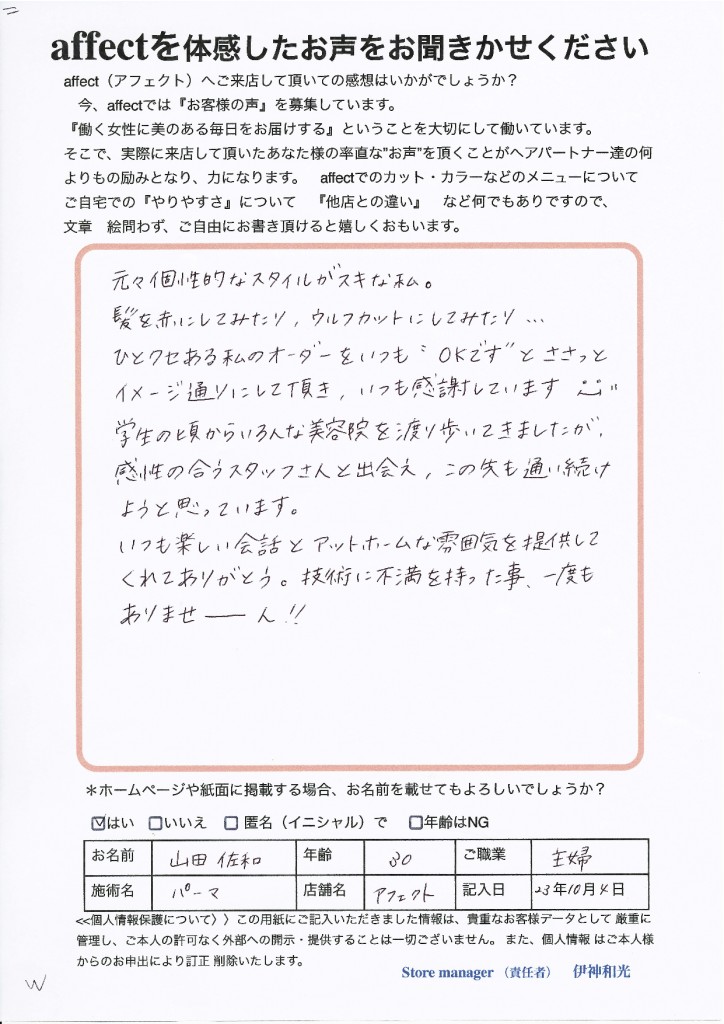 affectを体感したお声をお聞きかせください
affect（アフェクト）へご来店して頂いての感想はいかがでしょうか？
今、affectでは『お客様の声』を募集しています。
『働く女性に美のある毎日をお届けする』ということを大切にして働いています。
そこで、実際に来店して頂いたあなた様の率直な"お声"を頂くことがヘアパートナー達の何
よりもの励みとなり、力になります。　affectでのカット・カラーなどのメニューについて
ご自宅での『やりやすさ』について　『他店との違い』　など何でもありですので、
文章　絵問わず、ご自由にお書き頂けると嬉しくおもいます。
元々個性的なスタイルがスキな私。
髪を赤にしてみたり，ウルフカットにしてみたり…
ひとクセある私のオーダーをいつも〝OKです〟とささっと
イメージ通りにして頂き，いつも感謝しています
学生の頃からいろんな美容院を渡り歩いてきましたが，
感性の合うスタッフさんと出会え，この先も通い続け
ようと思っています。
いつも楽しい会話とアットホームな雰囲気を提供して
くれてありがとう。技術に不満を持った事、一度も
ありませーーん!!
＊ホームページや紙面に掲載する場合、お名前を載せてもよろしいでしょうか？
☑はい　□いいえ　□ 匿名（イニシャル）で　□年齢はNG
お名前 山田 佐和 年齢 30 ご職業 主婦
施術名 パーマ 店舗名 アフェクト 記入日 23年10月4日
<<個人情報保護について〉〉この用紙にご記入いただきました情報は、貴重なお客様データとして 厳重に
管理し、ご本人の許可なく外部への開示・提供することは一切ございません。また、個人情報 はご本人様
からのお申出により訂正 削除いたします。
Store manager （責任者）　伊神和光
W